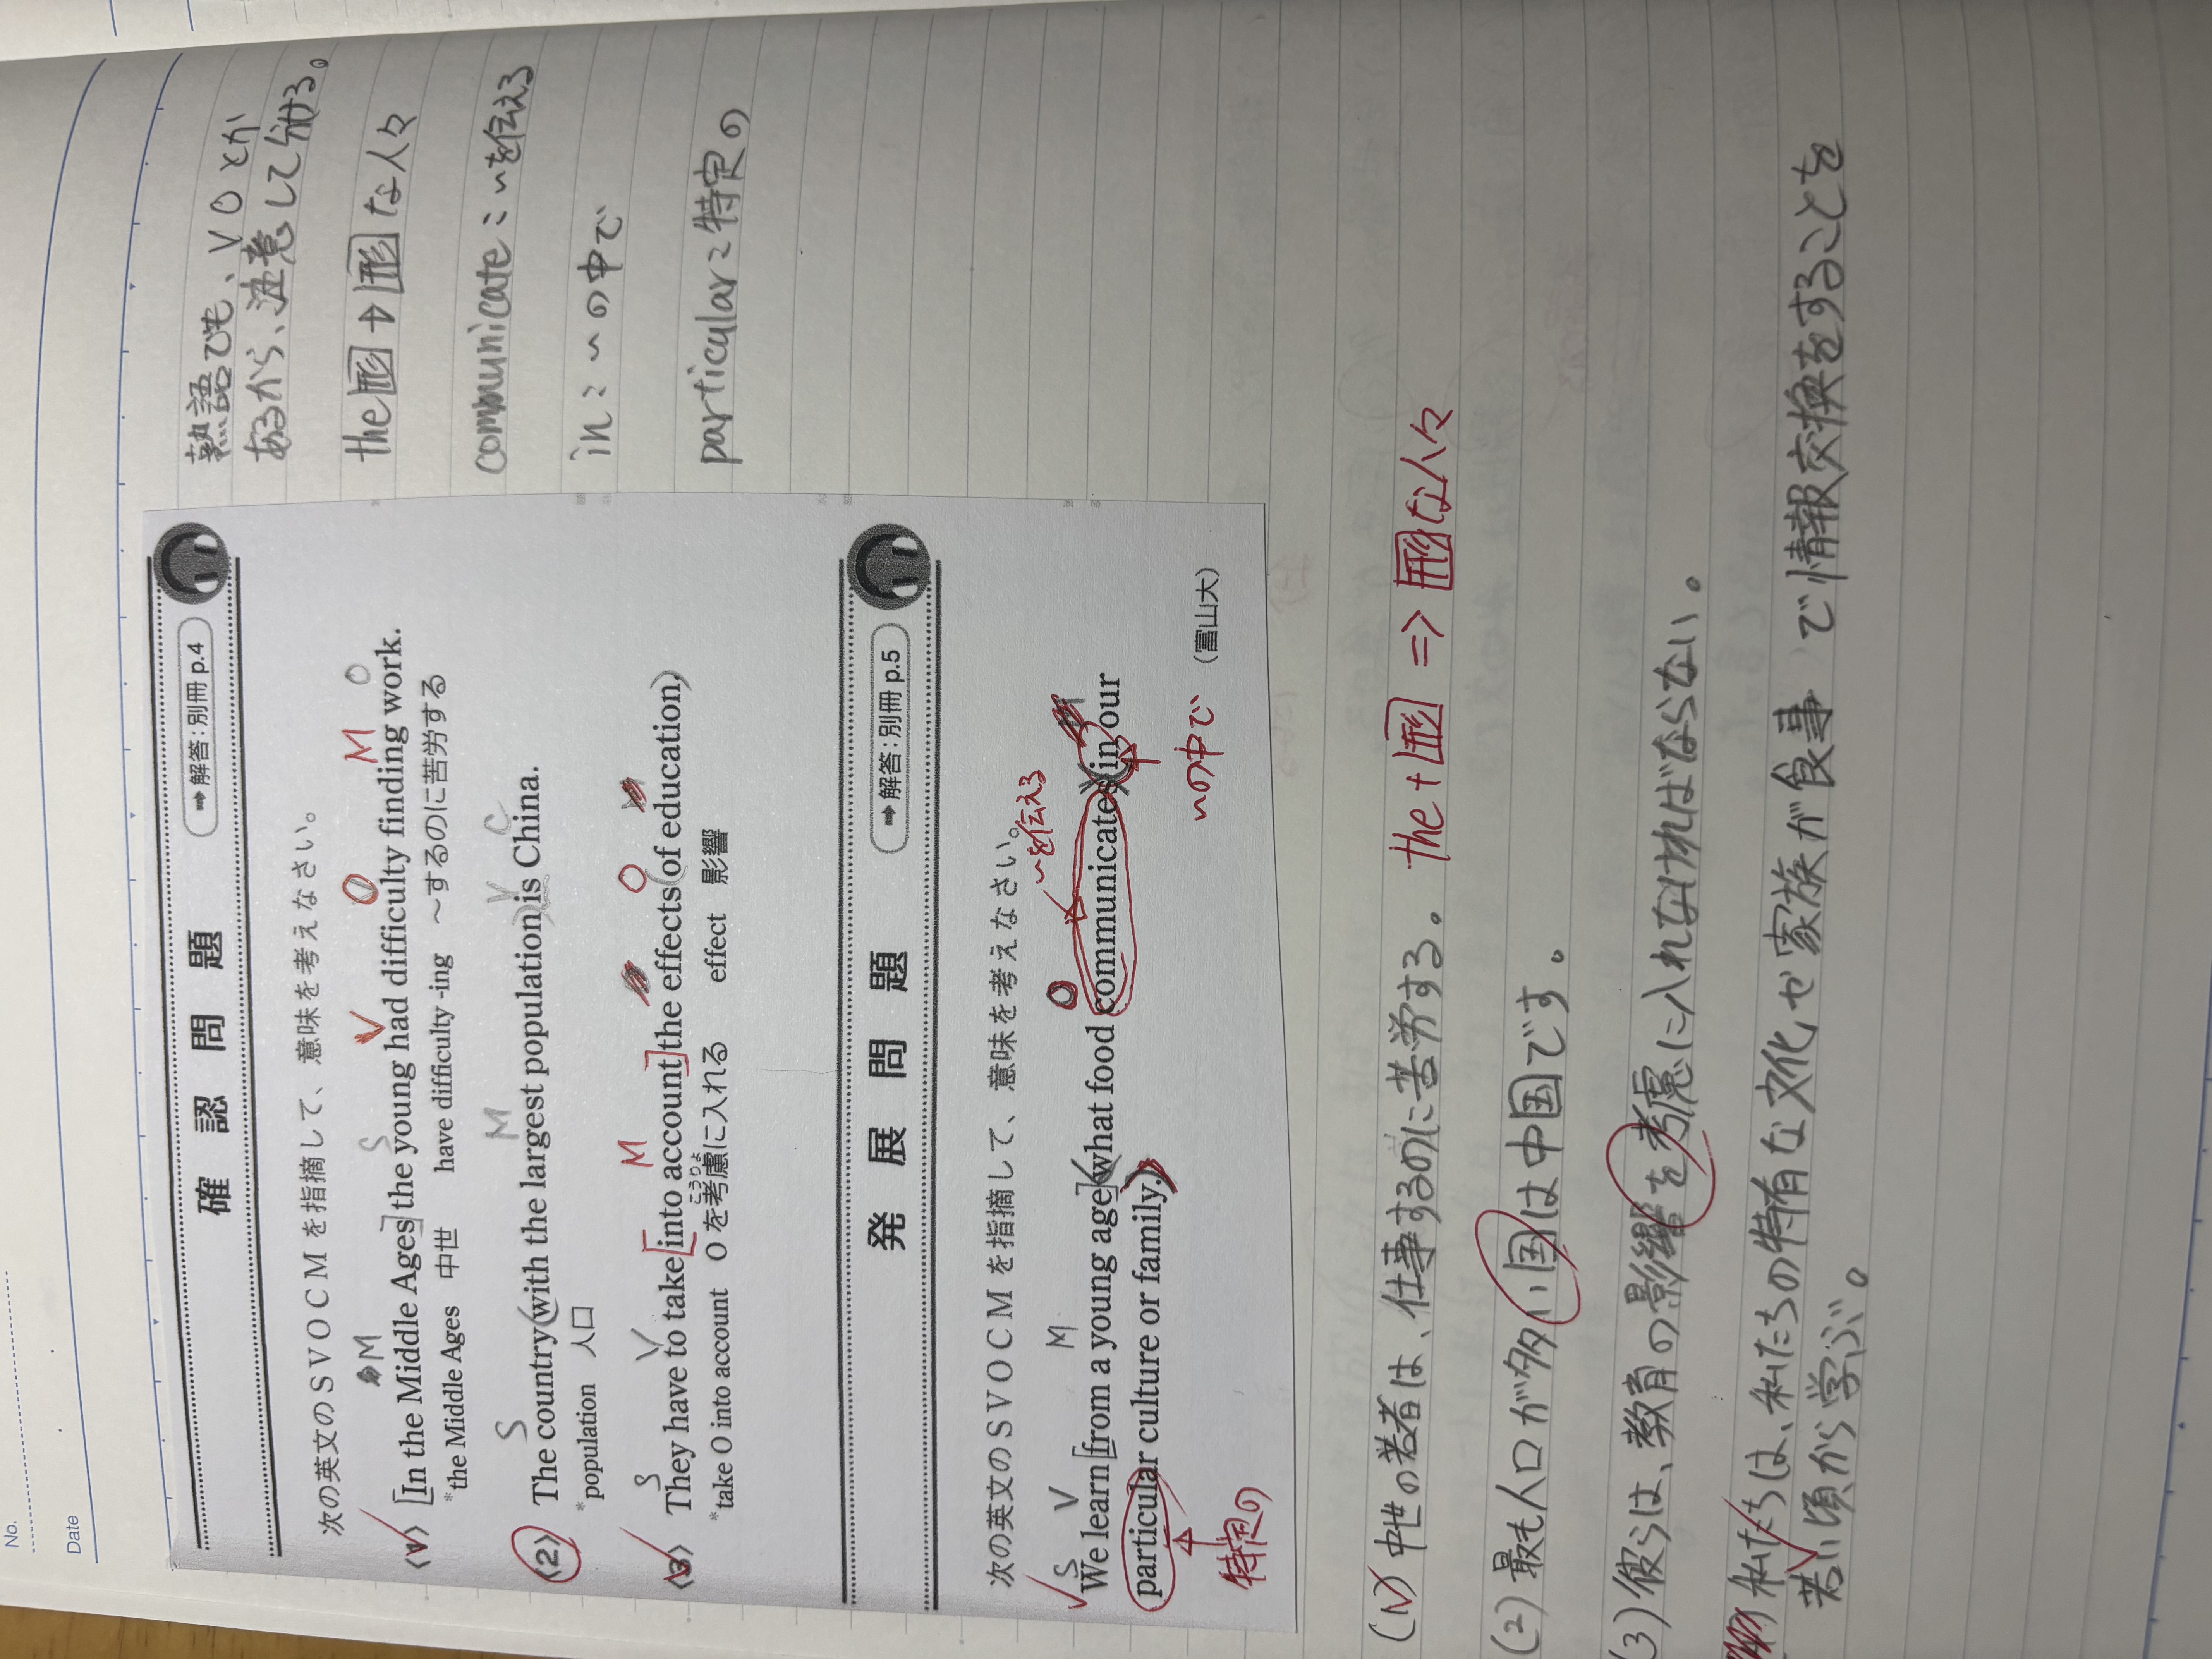 No.
Date
確認問題
➡解答：別冊 p.4
次の英文のSVOCMを指摘して、意味を考えなさい。
M S V O M O
〈1〉 [In the Middle Ages] the young had difficulty finding work.
*the Middle Ages 中世 have difficulty -ing ～するのに苦労する
S M V C
〈2〉 The country (with the largest population) is China.
*population 人口
S V M O
〈3〉 They have to take [into account] the effects (of education)
*take O into account Oを考慮に入れる effect 影響
こうりょ
発展問題
➡解答：別冊 p.5
次の英文のSVOCMを指摘して、意味を考えなさい。
～を伝える
S V M O
We learn [from a young age] (what food communicates in our
particular culture or family.)
特定の
～の中で
(富山大)
熟語でも、VOとか
あるから、注意して分ける。
the 形 → 形 な人々
communicate：～を伝える
in：～の中で
particular：特定の
(1) 中世の若者は、仕事するのに苦労する。 the + 形 => 形な人々
(2) 最も人口が多い国は中国です。
(3) 彼らは、教育の影響を考慮に入れなければならない。
私たちは、私たちの特有な文化や家族が食事で情報交換をすることを
若い頃から学ぶ。